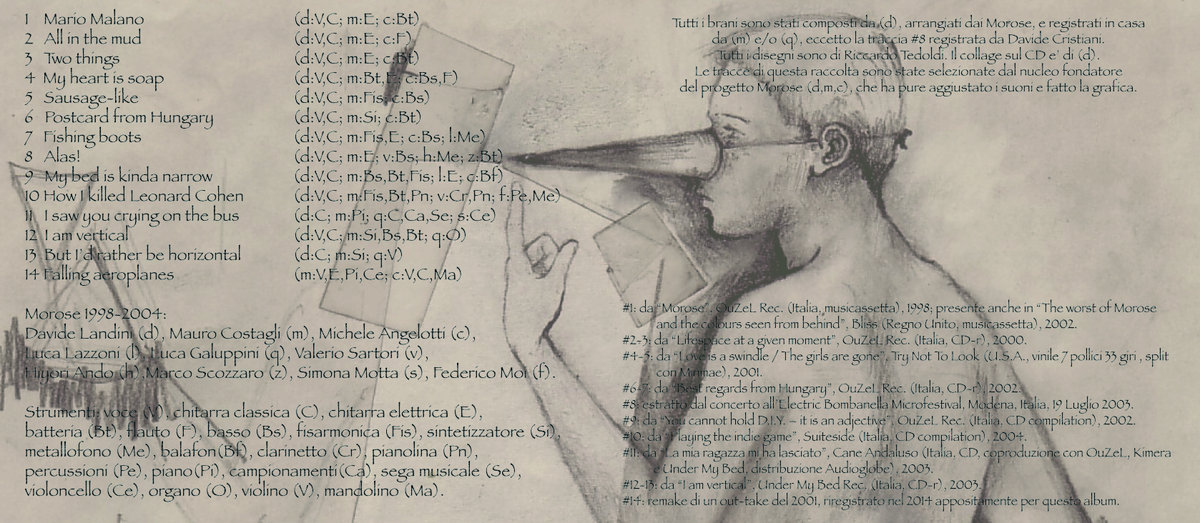 1 Mario Malano (d:V,C; m:E; c:Bt)
2 All in the mud (d:V,C; m:E; c:F)
3 Two things (d:V,C; m:E; c:Bt)
4 My heart is soap (d:V,C; m:Bt,E; c:Bs,F)
5 Sausage-like (d:V,C; m:Fis; c:Bs)
6 Postcard from Hungary (d:V,C; m:Si; c:Bt)
7 Fishing boots (d:V,C; m:Fis,E; c:Bs; l:Me)
8 Alas! (d:V,C; m:E; v:Bs; h:Me; z:Bt)
9 My bed is kinda narrow (d:V,C; m:Bs,Bt,Fis; l:E; c:Bf)
10 How I killed Leonard Cohen (d:V,C; m:Fis,Bt,Pn; v:Cr,Pn; f:Pe,Me)
11 I saw you crying on the bus (d:C; m:Pi; q:C,Ca,Se; s:Ce)
12 I am vertical (d:V,C; m:Si,Bs,Bt; q:O)
13 But I'd rather be horizontal (d:C; m:Si; q:V)
14 Falling aeroplanes (m:V,E,Pi,Ce; c:V,C,Ma)
Morose 1998-2004:
Davide Landini (d), Mauro Costagli (m), Michele Angelotti (c),
Luca Lazzoni (l), Luca Galuppini (q), Valerio Sartori (v),
Hiyori Ando (h), Marco Scozzaro (z), Simona Motta (s), Federico Moi (f).
Strumenti: voce (V), chitarra classica (C), chitarra elettrica (E),
batteria (Bt), flauto (F), basso (Bs), fisarmonica (Fis), sintetizzatore (Si),
metallofono (Me), balafon(Bf), clarinetto (Cr), pianolina (Pn),
percussioni (Pe), piano(Pi), campionamenti(Ca), sega musicale (Se),
violoncello (Ce), organo (O), violino (V), mandolino (Ma).
Tutti i brani sono stati composti da (d), arrangiati dai Morose, e registrati in casa
da (m) e/o (q), eccetto la traccia #8 registrata da Davide Cristiani.
Tutti i disegni sono di Riccardo Tedoldi. Il collage sul CD e' di (d).
Le tracce di questa raccolta sono state selezionate dal nucleo fondatore
del progetto Morose (d,m,c), che ha pure aggiustato i suoni e fatto la grafica.
#1: da "Morose", OuZeL Rec. (Italia, musicassetta), 1998; presente anche in "The worst of Morose
and the colours seen from behind", Bliss (Regno Unito, musicassetta), 2002.
#2-3: da "Lifespace at a given moment", OuZeL Rec. (Italia, CD-r), 2000.
#4-5: da "Love is a swindle / The girls are gone", Try Not To Look (U.S.A., vinile 7 pollici 33 giri, split
con), 2001.
#6-7: da "Best regards from Hungary", OuZeL Rec. (Italia, CD-r), 2002.
#8: estratto dal concerto all'Electric Bombanella Microfestival, Modena, Italia, 19 Luglio 2003.
#9: da "You cannot hold D.I.Y. – it is an adjective", OuZeL Rec. (Italia, CD compilation), 2002.
#10: da "Playing the indie game", Suiteside (Italia, CD compilation), 2004.
#11: da "La mia ragazza mi ha lasciato", Cane Andaluso (Italia, CD, coproduzione con OuZeL, Kimera
e Under My Bed, distribuzione Audioglobe), 2003.
#12-13: da "I am vertical", Under My Bed Rec. (Italia, CD-r), 2003.
#14: remake di un out-take del 2001, riregistrato nel 2014 appositamente per questo album.